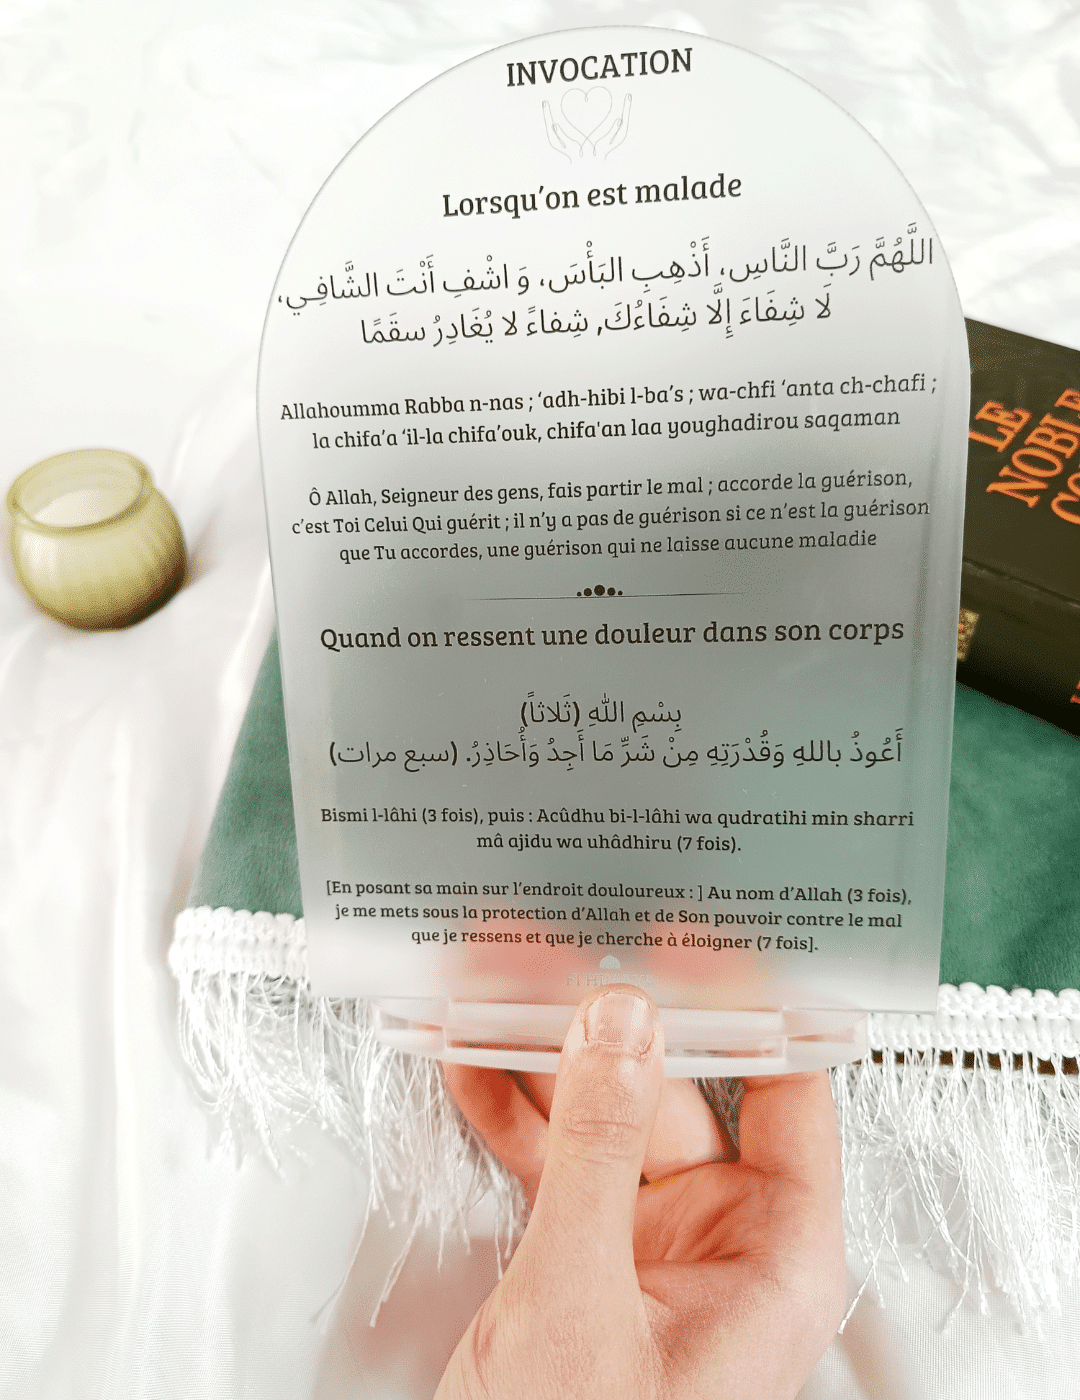 INVOCATION
Lorsqu'on est malade
اللَّهُمَّ رَبَّ النَّاسِ، أَذْهِبِ البَأْسَ، وَ اشْفِ أَنْتَ الشَّافِي،
لَا شِفَاءَ إِلَّا شِفَاءُكَ, شِفاءً لا يُغَادِرُ سقَمًا
Allahoumma Rabba n-nas ; ‘adh-hibi l-ba’s ; wa-chfi ‘anta ch-chafi ;
la chifa’a ‘il-la chifa’ouk, chifa'an laa youghadirou saqaman
Ô Allah, Seigneur des gens, fais partir le mal ; accorde la guérison,
c’est Toi Celui Qui guérit ; il n’y a pas de guérison si ce n’est la guérison
que Tu accordes, une guérison qui ne laisse aucune maladie
Quand on ressent une douleur dans son corps
بِسْمِ اللهِ (ثَلاثاً)
أَعُوذُ باللهِ وَقُدْرَتِهِ مِنْ شَرِّ مَا أَجِدُ وَأُحَاذِرُ. (سبع مرات)
Bismi l-lâhi (3 fois), puis : Acûdhu bi-l-lâhi wa qudratihi min sharri
mâ ajidu wa uhâdhiru (7 fois).
[En posant sa main sur l’endroit douloureux : ] Au nom d’Allah (3 fois),
je me mets sous la protection d’Allah et de Son pouvoir contre le mal
que je ressens et que je cherche à éloigner (7 fois].
LE
NOBLE